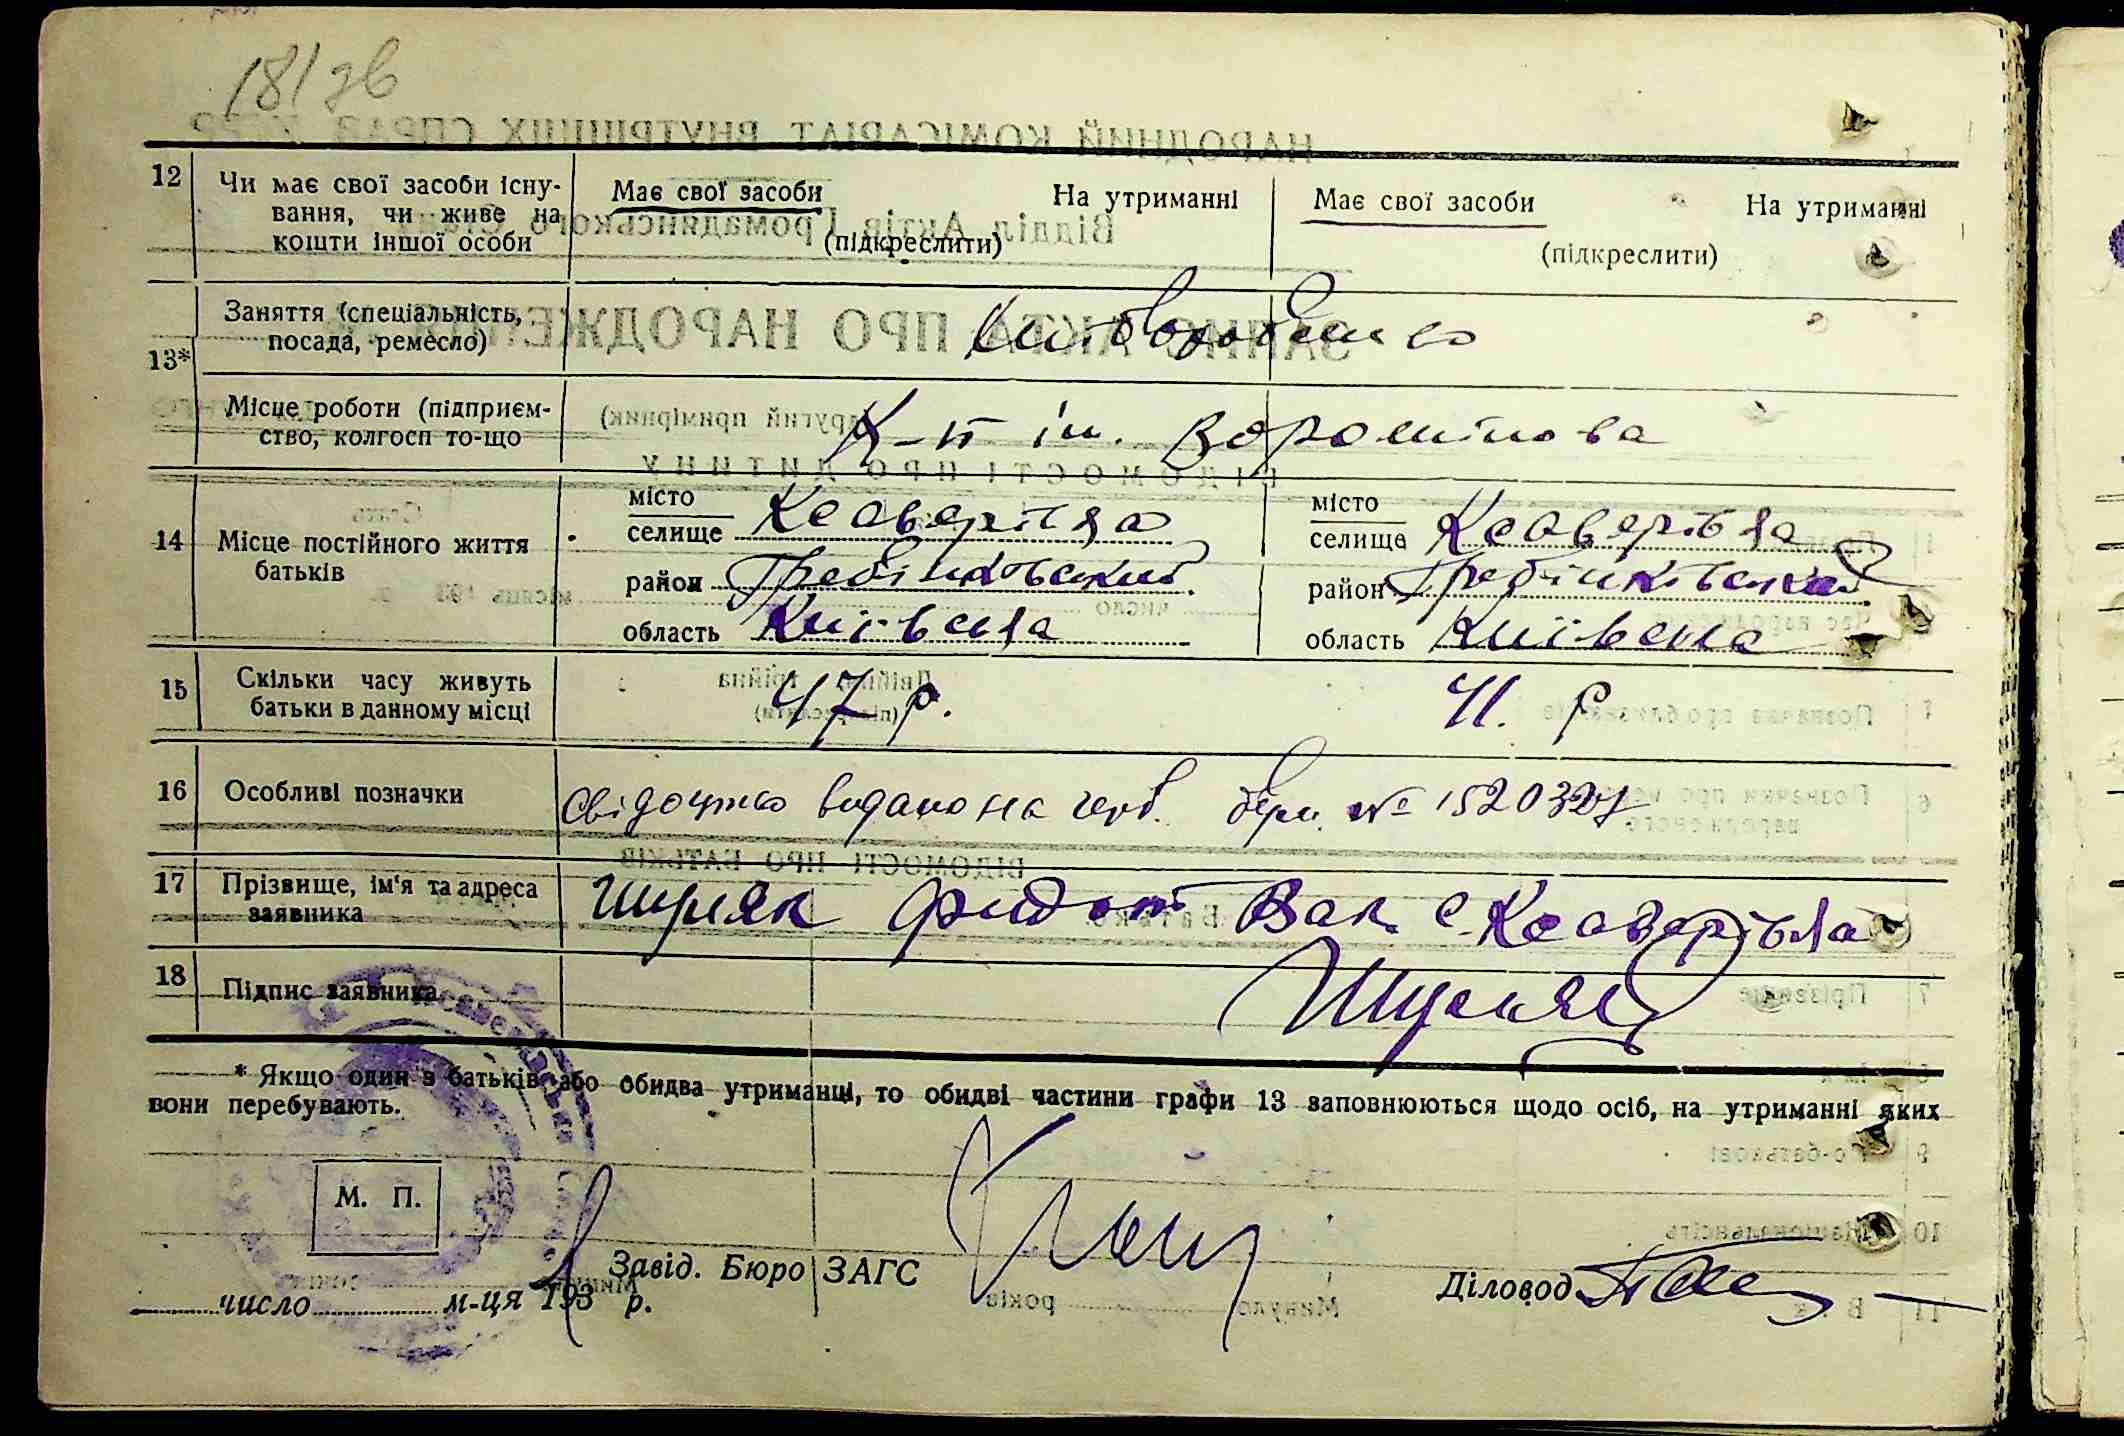 18/зв
12 Чи має свої засоби існу-
вання, чи живе на
кошти іншої особи
Має свої засоби На утриманні
(підкреслити)
Має свої засоби На утриманні
(підкреслити)
13* Заняття (спеціальність,
посада, ремесло)
Хліборобство
Місце роботи (підприєм-
ство, колгосп то-що
К-п ім. Ворошілова
14 Місце постійного життя
батьків
місто
селище Ксаверівка
район Гребінківський
область Київська
місто
селище Ксаверівка
район Гребінківський
область Київська
15 Скільки часу живуть
батьки в данному місці
47 р. 41. р
16 Особливі позначки
Свідоцтво видано на герб. бум. № 1520327
17 Прізвище, ім'я та адреса
заявника
Шуляк Фидот Вак. с. Ксаверівка
18 Підпис заявника
Шуляк
* Якщо один з батьків або обидва утриманці, то обидві частини графи 13 заповнюються щодо осіб, на утриманні яких
вони перебувають.
М. П.
Завід. Бюро ЗАГС
Діловод
число м-ця 193 р.